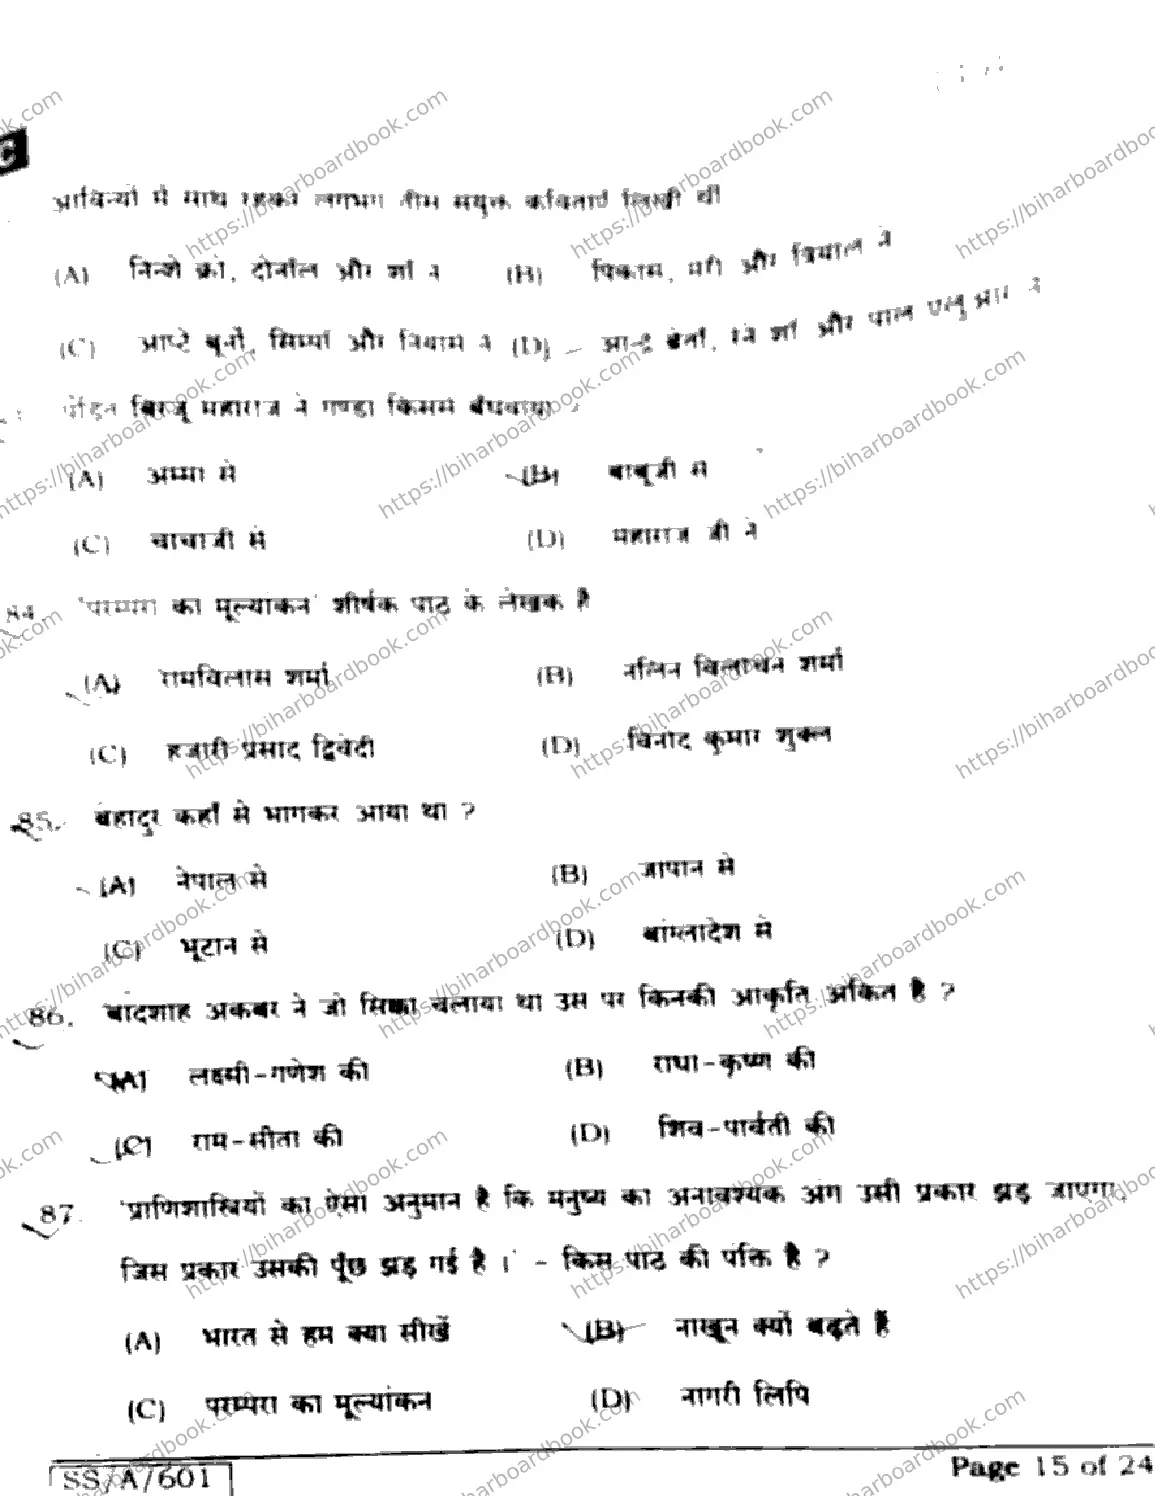 C
में साथ लगभग तीस संयुक्त कविताएँ लिखी थीं
(A) और शॉ ने (B) पिकासो, और ने
(C) और ने (D) शॉ और पाल एलुआर ने
पंडित बिरजू महाराज ने गण्डा किससे बँधवाया ?
(A) अम्मा से (B) बाबूजी से
(C) चाचाजी से (D) महाराज जी ने
84. 'परम्परा का मूल्यांकन' शीर्षक पाठ के लेखक हैं
(A) रामविलास शर्मा (B) नलिन विलोचन शर्मा
(C) हजारी प्रसाद द्विवेदी (D) विनोद कुमार शुक्ल
85. बहादुर कहाँ से भागकर आया था ?
(A) नेपाल से (B) जापान से
(C) भूटान से (D) बांग्लादेश से
86. बादशाह अकबर ने जो सिक्का चलाया था उस पर किनकी आकृति अंकित है ?
(A) लक्ष्मी-गणेश की (B) राधा-कृष्ण की
(C) राम-सीता की (D) शिव-पार्वती की
87. 'प्राणिशास्त्रियों का ऐसा अनुमान है कि मनुष्य का अनावश्यक अंग उसी प्रकार झड़ जाएगा,
जिस प्रकार उसकी पूँछ झड़ गई है।' - किस पाठ की पंक्ति है ?
(A) भारत से हम क्या सीखें (B) नाखून क्यों बढ़ते हैं
(C) परम्परा का मूल्यांकन (D) नागरी लिपि
SS/A/601 Page 15 of 24
https://biharboardbook.com